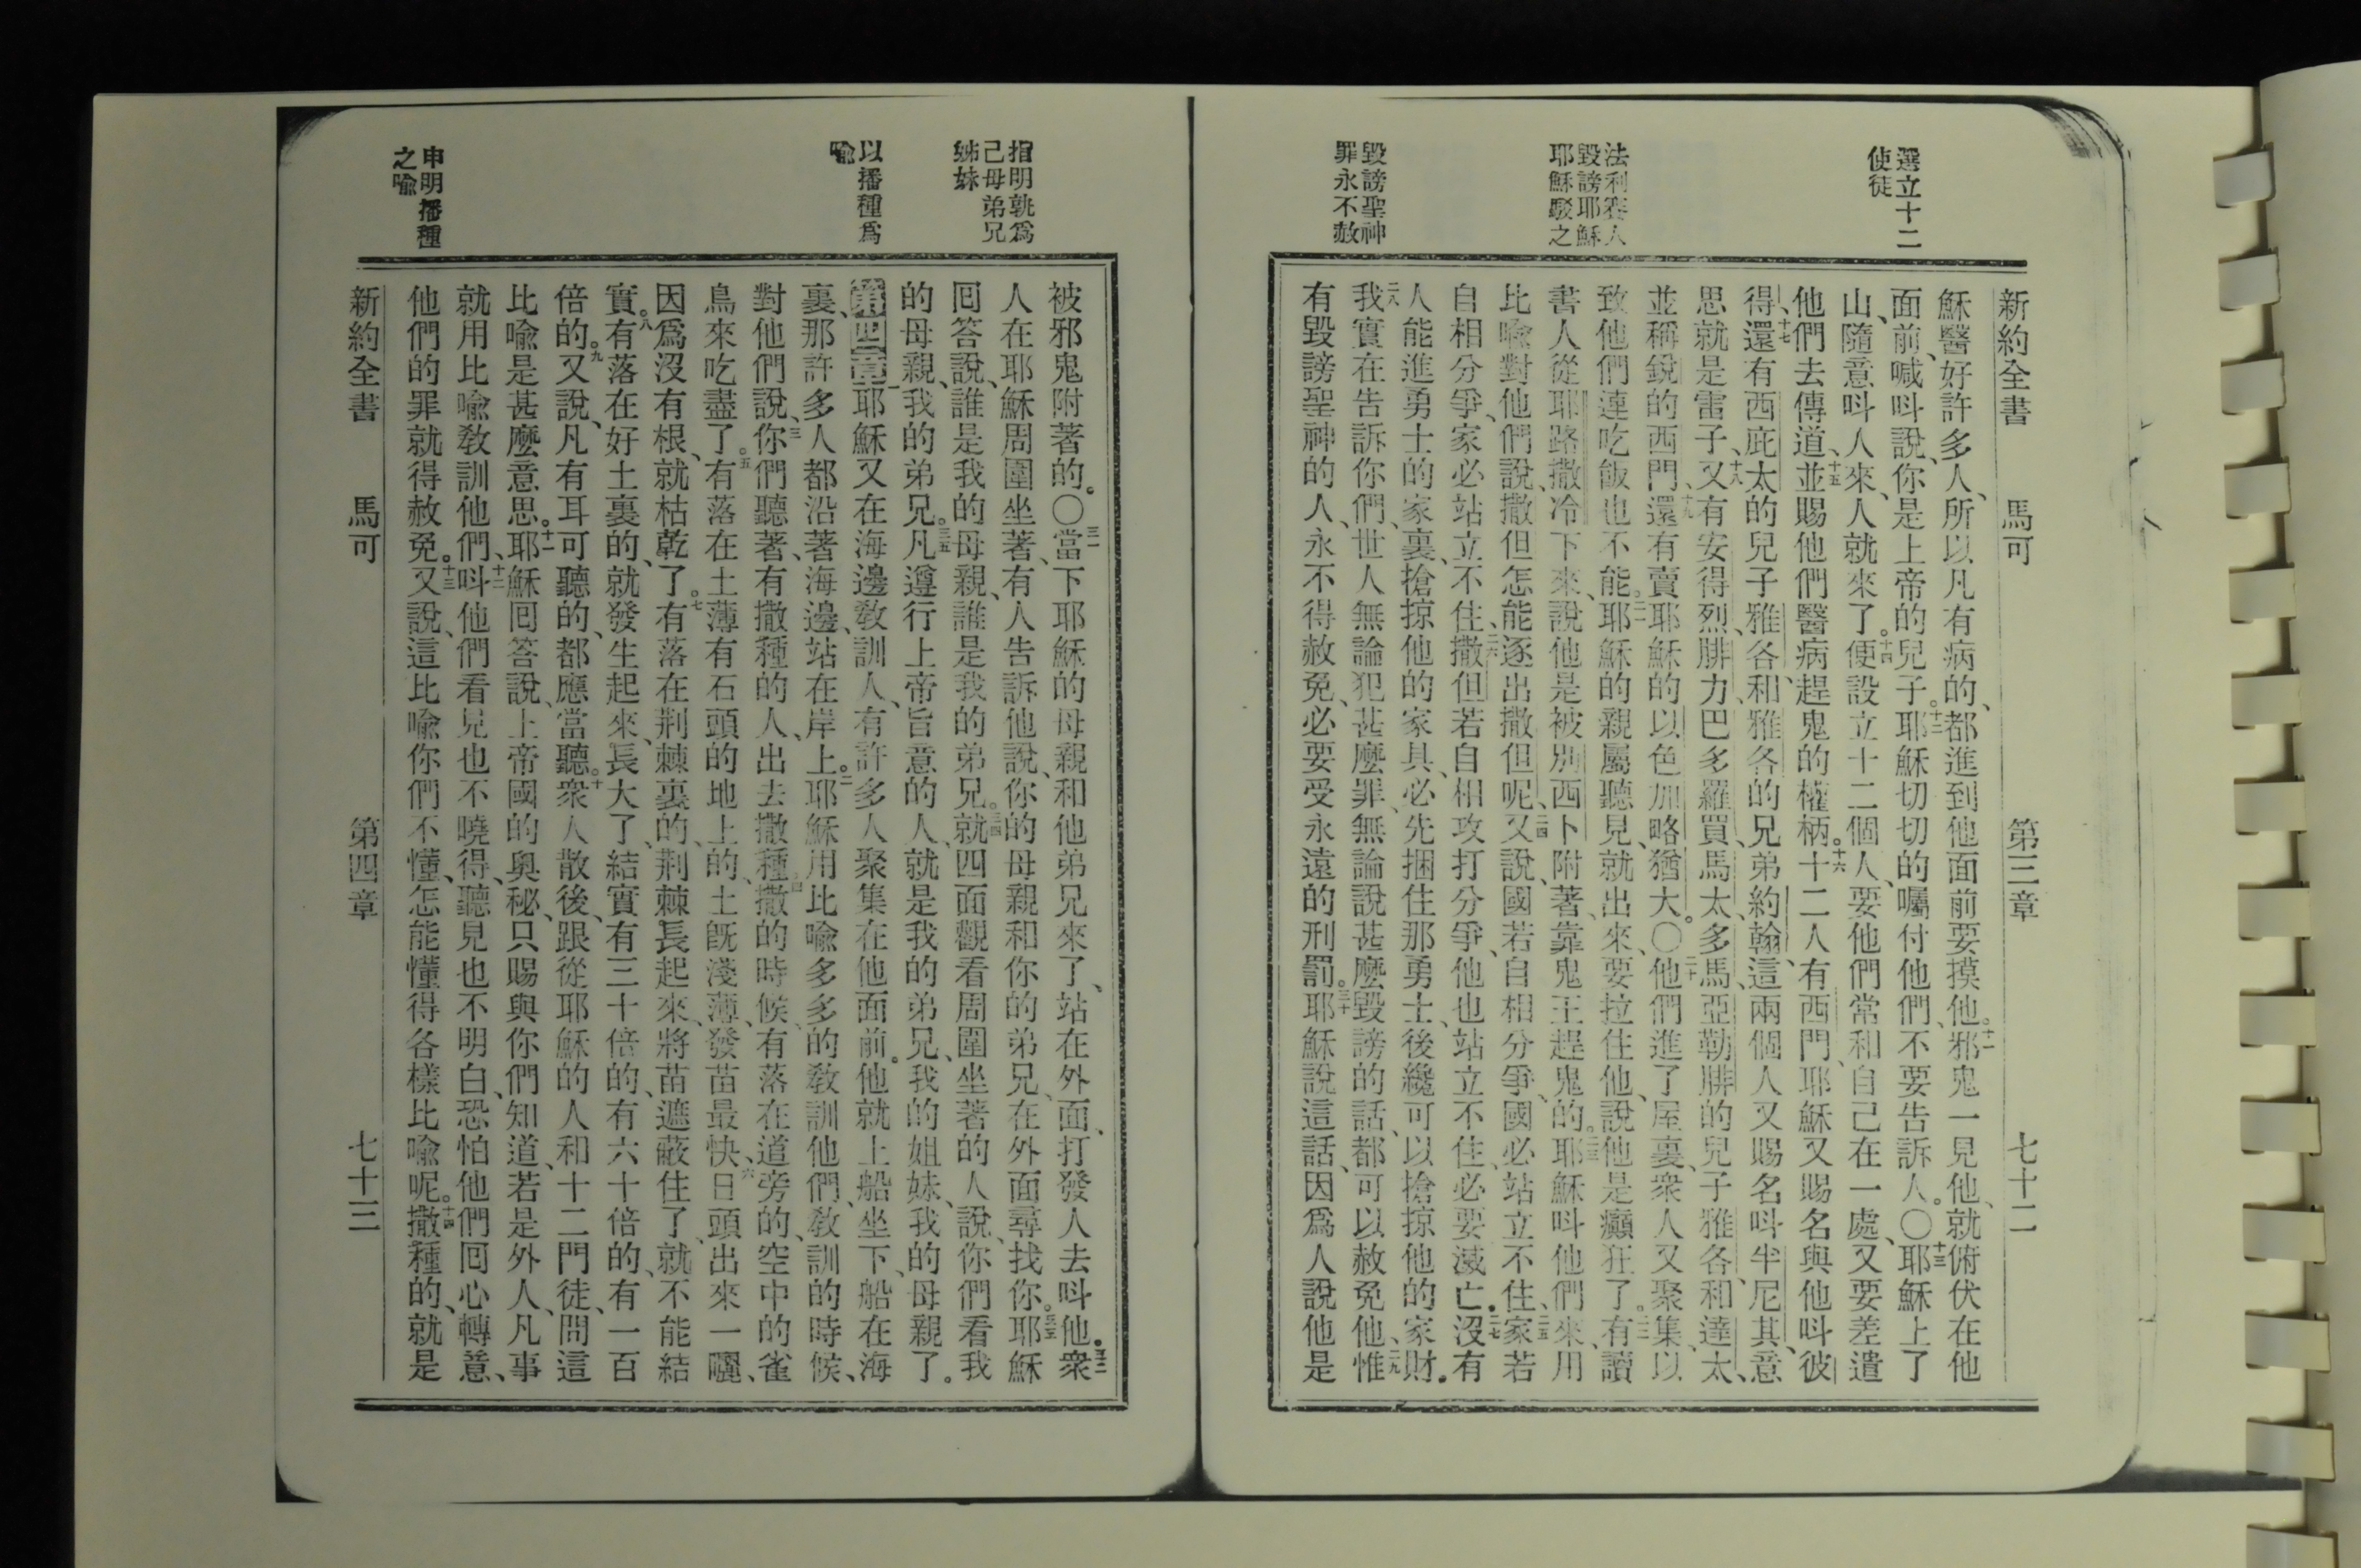 新約全書 馬可 第三章 七十二
選立十二
使徒
法利賽人
毀謗耶穌
耶穌駁之
毀謗聖神
罪永不赦
穌醫好許多人、所以凡有病的、都進到他面前要摸他。十一邪鬼一見他、就俯伏在他
面前、喊呌說、你是上帝的兒子。十二耶穌切切的囑付他們、不要告訴人。〇十三耶穌上了
山、隨意呌人來、人就來了。十四便設立十二個人、要他們常和自己在一處、又要差遣
他們去傳道、十五並賜他們醫病趕鬼的權柄。十六十二人有西門、耶穌又賜名與他呌彼
得、十七還有西庇太的兒子雅各、和雅各的兄弟約翰、這兩個人又賜名呌半尼其、意
思就是雷子、十八又有安得烈、腓力、巴多羅買、馬太、多馬、亞勒腓的兒子雅各、和達太、
並稱銳的西門、十九還有賣耶穌的以色加略猶大。〇二十他們進了屋裏、衆人又聚集、以
致他們連吃飯也不能。二一耶穌的親屬聽見、就出來、要拉住他、說他是癲狂了。二二有讀
書人從耶路撒冷下來、說他是被別西卜附著、靠鬼王趕鬼的。二三耶穌呌他們來、用
比喻對他們說、撒但怎能逐出撒但呢、二四又說、國若自相分爭、國必站立不住、二五家若
自相分爭、家必站立不住、二六撒但若自相攻打分爭、他也站立不住、必要滅亡。二七沒有
人能進勇士的家裏、搶掠他的家具、必先捆住那勇士、後纔可以搶掠他的家財。
二八我實在告訴你們、世人無論犯甚麼罪、無論說甚麼毀謗的話、都可以赦免他、二九惟
有毀謗聖神的人、永不得赦免、必要受永遠的刑罰。三十耶穌說這話、因爲人說他是
指明孰爲
己母弟兄
姊妹
以播種爲
喻
申明播種
之喻
被邪鬼附著的。〇三一當下耶穌的母親、和他弟兄來了、站在外面、打發人去呌他。三二衆
人在耶穌周圍坐著、有人告訴他說、你的母親和你的弟兄、在外面尋找你。三三耶穌
囘答說、誰是我的母親、誰是我的弟兄。三四就四面觀看周圍坐著的人、說、你們看我
的母親、我的弟兄。三五凡遵行上帝旨意的人、就是我的弟兄、我的姐妹、我的母親了。
第四章 一耶穌又在海邊敎訓人、有許多人聚集在他面前。他就上船坐下、船在海
裏、那許多人都沿著海邊、站在岸上。二耶穌用比喻多多的敎訓他們、敎訓的時候、
對他們說、三你們聽著、有撒種的人、出去撒種、四撒的時候、有落在道旁的、空中的雀
鳥來吃盡了。五有落在土薄有石頭的地上的、土旣淺薄、發苗最快、六日頭出來一曬、
因爲沒有根、就枯乾了。七有落在荆棘裏的、荆棘長起來、將苗遮蔽住了、就不能結
實。八有落在好土裏的、就發生起來、長大了、結實有三十倍的、有六十倍的、有一百
倍的。九又說、凡有耳可聽的、都應當聽。十衆人散後、跟從耶穌的人和十二門徒、問這
比喻是甚麼意思。十一耶穌囘答說、上帝國的奥秘、只賜與你們知道、若是外人、凡事
就用比喻敎訓他們、十二呌他們看見也不曉得、聽見也不明白、恐怕他們囘心轉意、
他們的罪就得赦免。十三又說、這比喻你們不懂、怎能懂得各樣比喻呢。十四撒種的、就是
新約全書 馬可 第四章 七十三